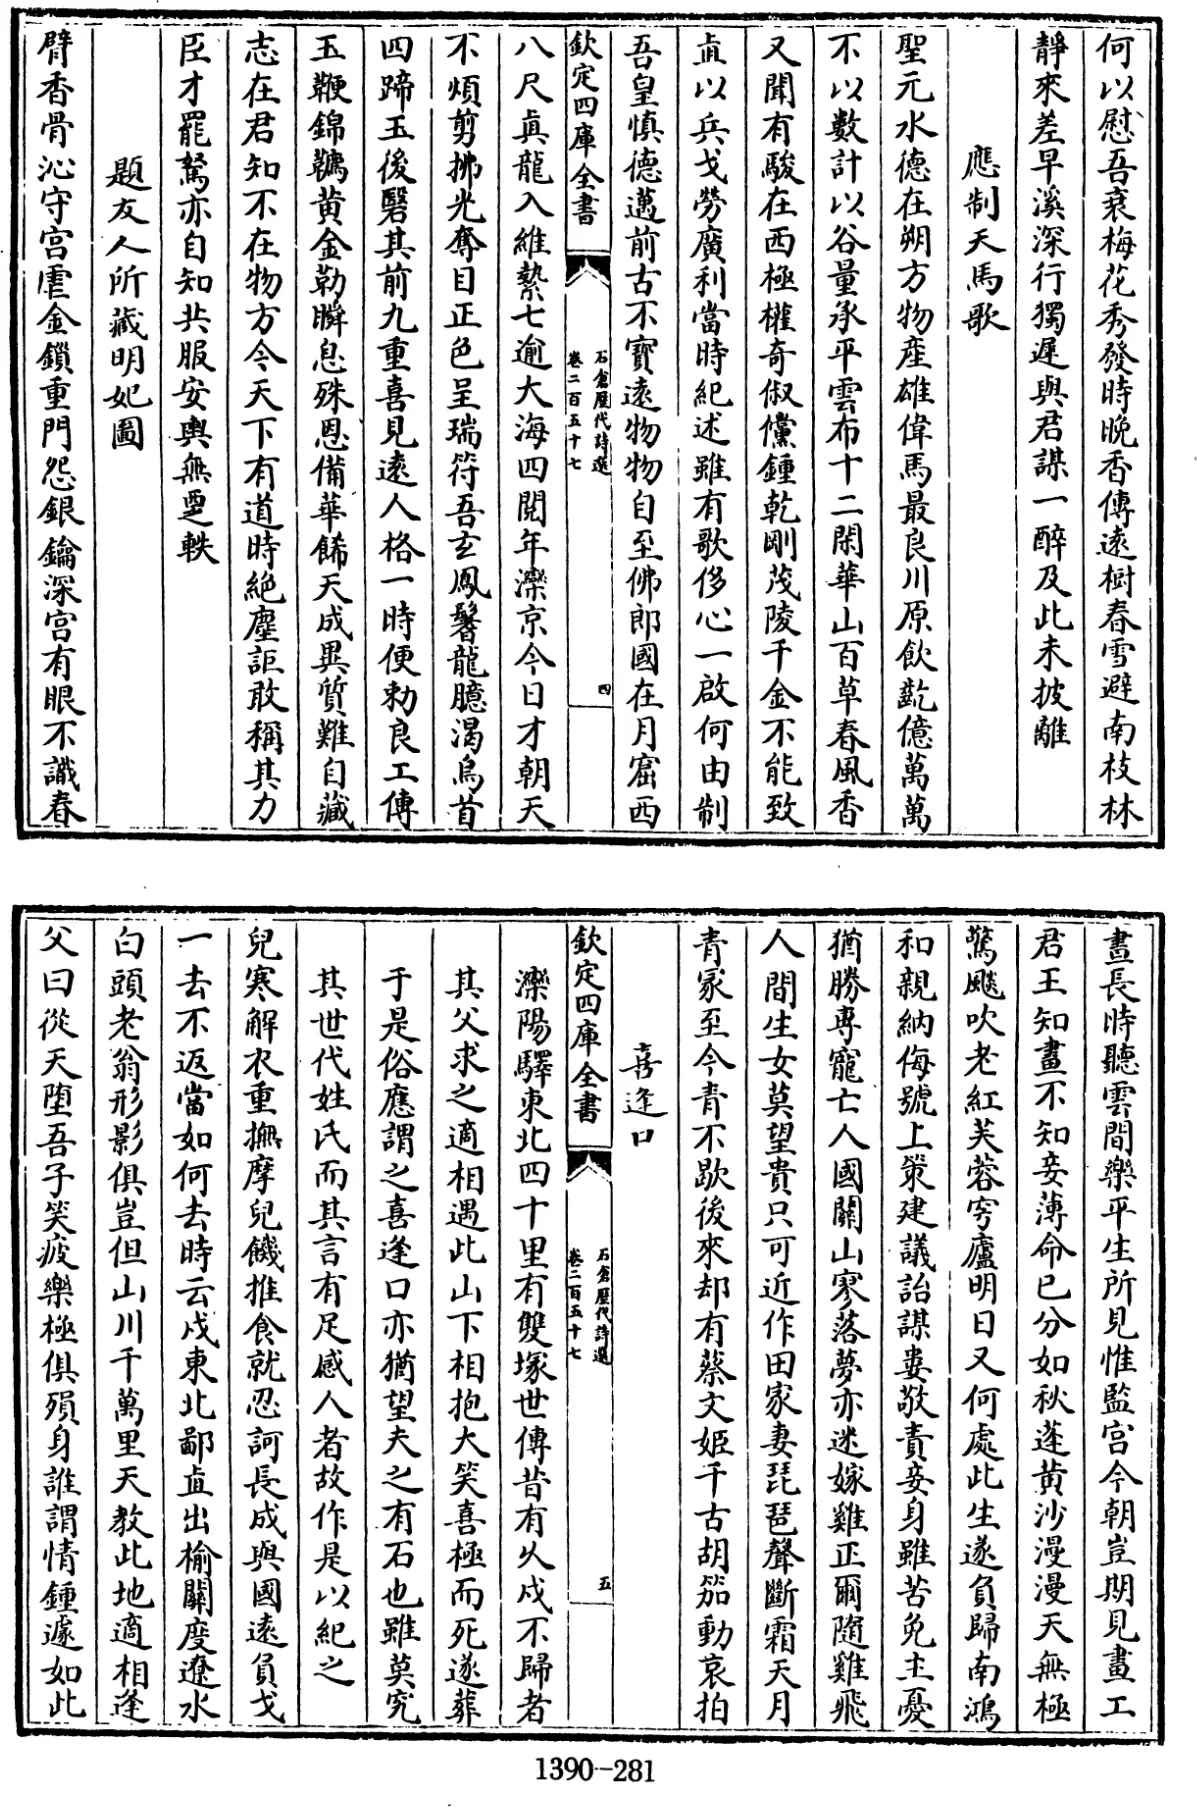 何以慰吾衰梅花秀發時晩香傳遠樹春雪避南枝林
靜來差早溪深行獨遲與君謀一醉及此未披離
應制天馬歌
聖元水德在朔方物產雄偉馬最良川原飲齕億萬萬
不以數計以谷量承平雲布十二閑華山百草春風香
又聞有駿在西極權奇俶儻鍾乾剛茂陵千金不能致
直以兵戈勞廣利當時紀述雖有歌侈心一啟何由制
吾皇慎德邁前古不寶遠物物自至佛郎國在月窟西
欽定四庫全書
石倉歷代詩選
卷二百五十七
四
八尺真龍入維縶七逾大海四閱年灤京今日才朝天
不煩剪拂光奪目正色呈瑞符吾玄鳳鬐龍臆渴烏首
四蹄玉後磬其前九重喜見遠人格一時便勑良工傳
玉鞭錦韉黃金勒瞬息殊恩備華餙天成異質難自藏
志在君知不在物方今天下有道時絶塵詎敢稱其力
臣才罷駑亦自知共服安輿無覂軼
題友人所藏明妃圖
臂香骨沁守宮虐金鎖重門怨銀鑰深宮有眼不識春
晝長時聽雲間樂平生所見惟監宮今朝豈期見畫工
君王知畫不知妾薄命已分如秋蓬黃沙漫漫天無極
驚飈吹老紅芙蓉穹廬明日又何處此生遂負歸南鴻
和親納侮號上策建議詒謀婁敬責妾身雖苦免主憂
猶勝專寵亡人國關山寥落夢亦迷嫁雞正爾隨雞飛
人間生女莫望貴只可近作田家妻琵琶聲斷霜天月
青冢至今青不歇後來却有蔡文姬千古胡笳動哀拍
喜逢口
欽定四庫全書
石倉歷代詩選
卷二百五十七
五
灤陽驛東北四十里有雙塚世傳昔有久戍不歸者
其父求之適相遇此山下相抱大笑喜極而死遂葬
于是俗應謂之喜逢口亦猶望夫之有石也雖莫究
其世代姓氏而其言有足感人者故作是以紀之
兒寒解衣重撫摩兒饑推食就忍訶長成與國遠負戈
一去不返當如何去時云戍東北鄙直出榆關度遼水
白頭老翁形影俱豈但山川千萬里天教此地適相逢
父曰從天墮吾子笑疲樂極俱殞身誰謂情鍾遽如此
1390-281